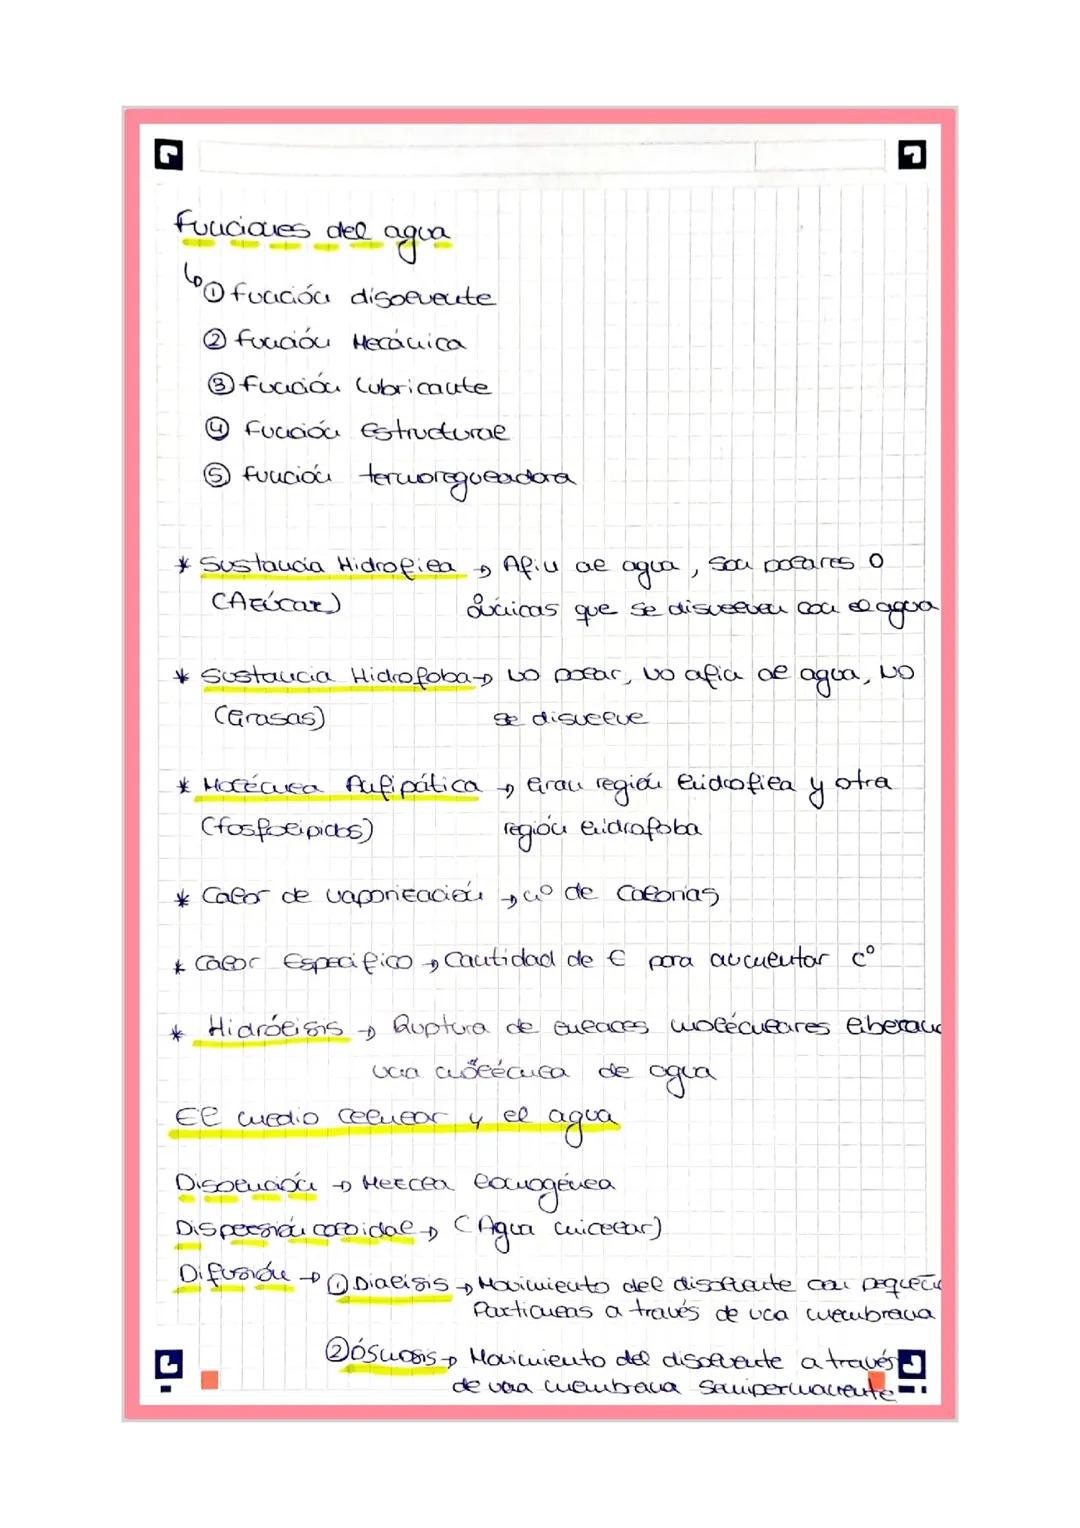 Funciones del agua
① función disolvente
② función Mecánica
③ función lubricante
④ función estructural
⑤ función termoreguladora
* Sustancia Hidrofila → Afín al agua, son polares o
(Azúcar) iónicas que se disuelven con el agua
* Sustancia Hidrofoba → no polar, no afín al agua, no
(Grasas) se disuelve
* Molécula Anfipática → Gran región hidrofila y otra
(fosfolípidos) región hidrofoba
* Calor de vaporización → nº de calorias
* Calor Especifico → Cantidad de E para aumentar cº
* Hidrólisis → Ruptura de enlaces moléculares liberand
una molécula de agua
El medio celular y el agua
Disolución → Mezcla homogénea
Dispersión coloidal → (Agua micelar)
Difusión → ① Dialisis → Movimiento del disolvente con pequeñ
Particulas a través de una membrana
② Ósmosis → Movimiento del disolvente a través
de una membrana semipermanente